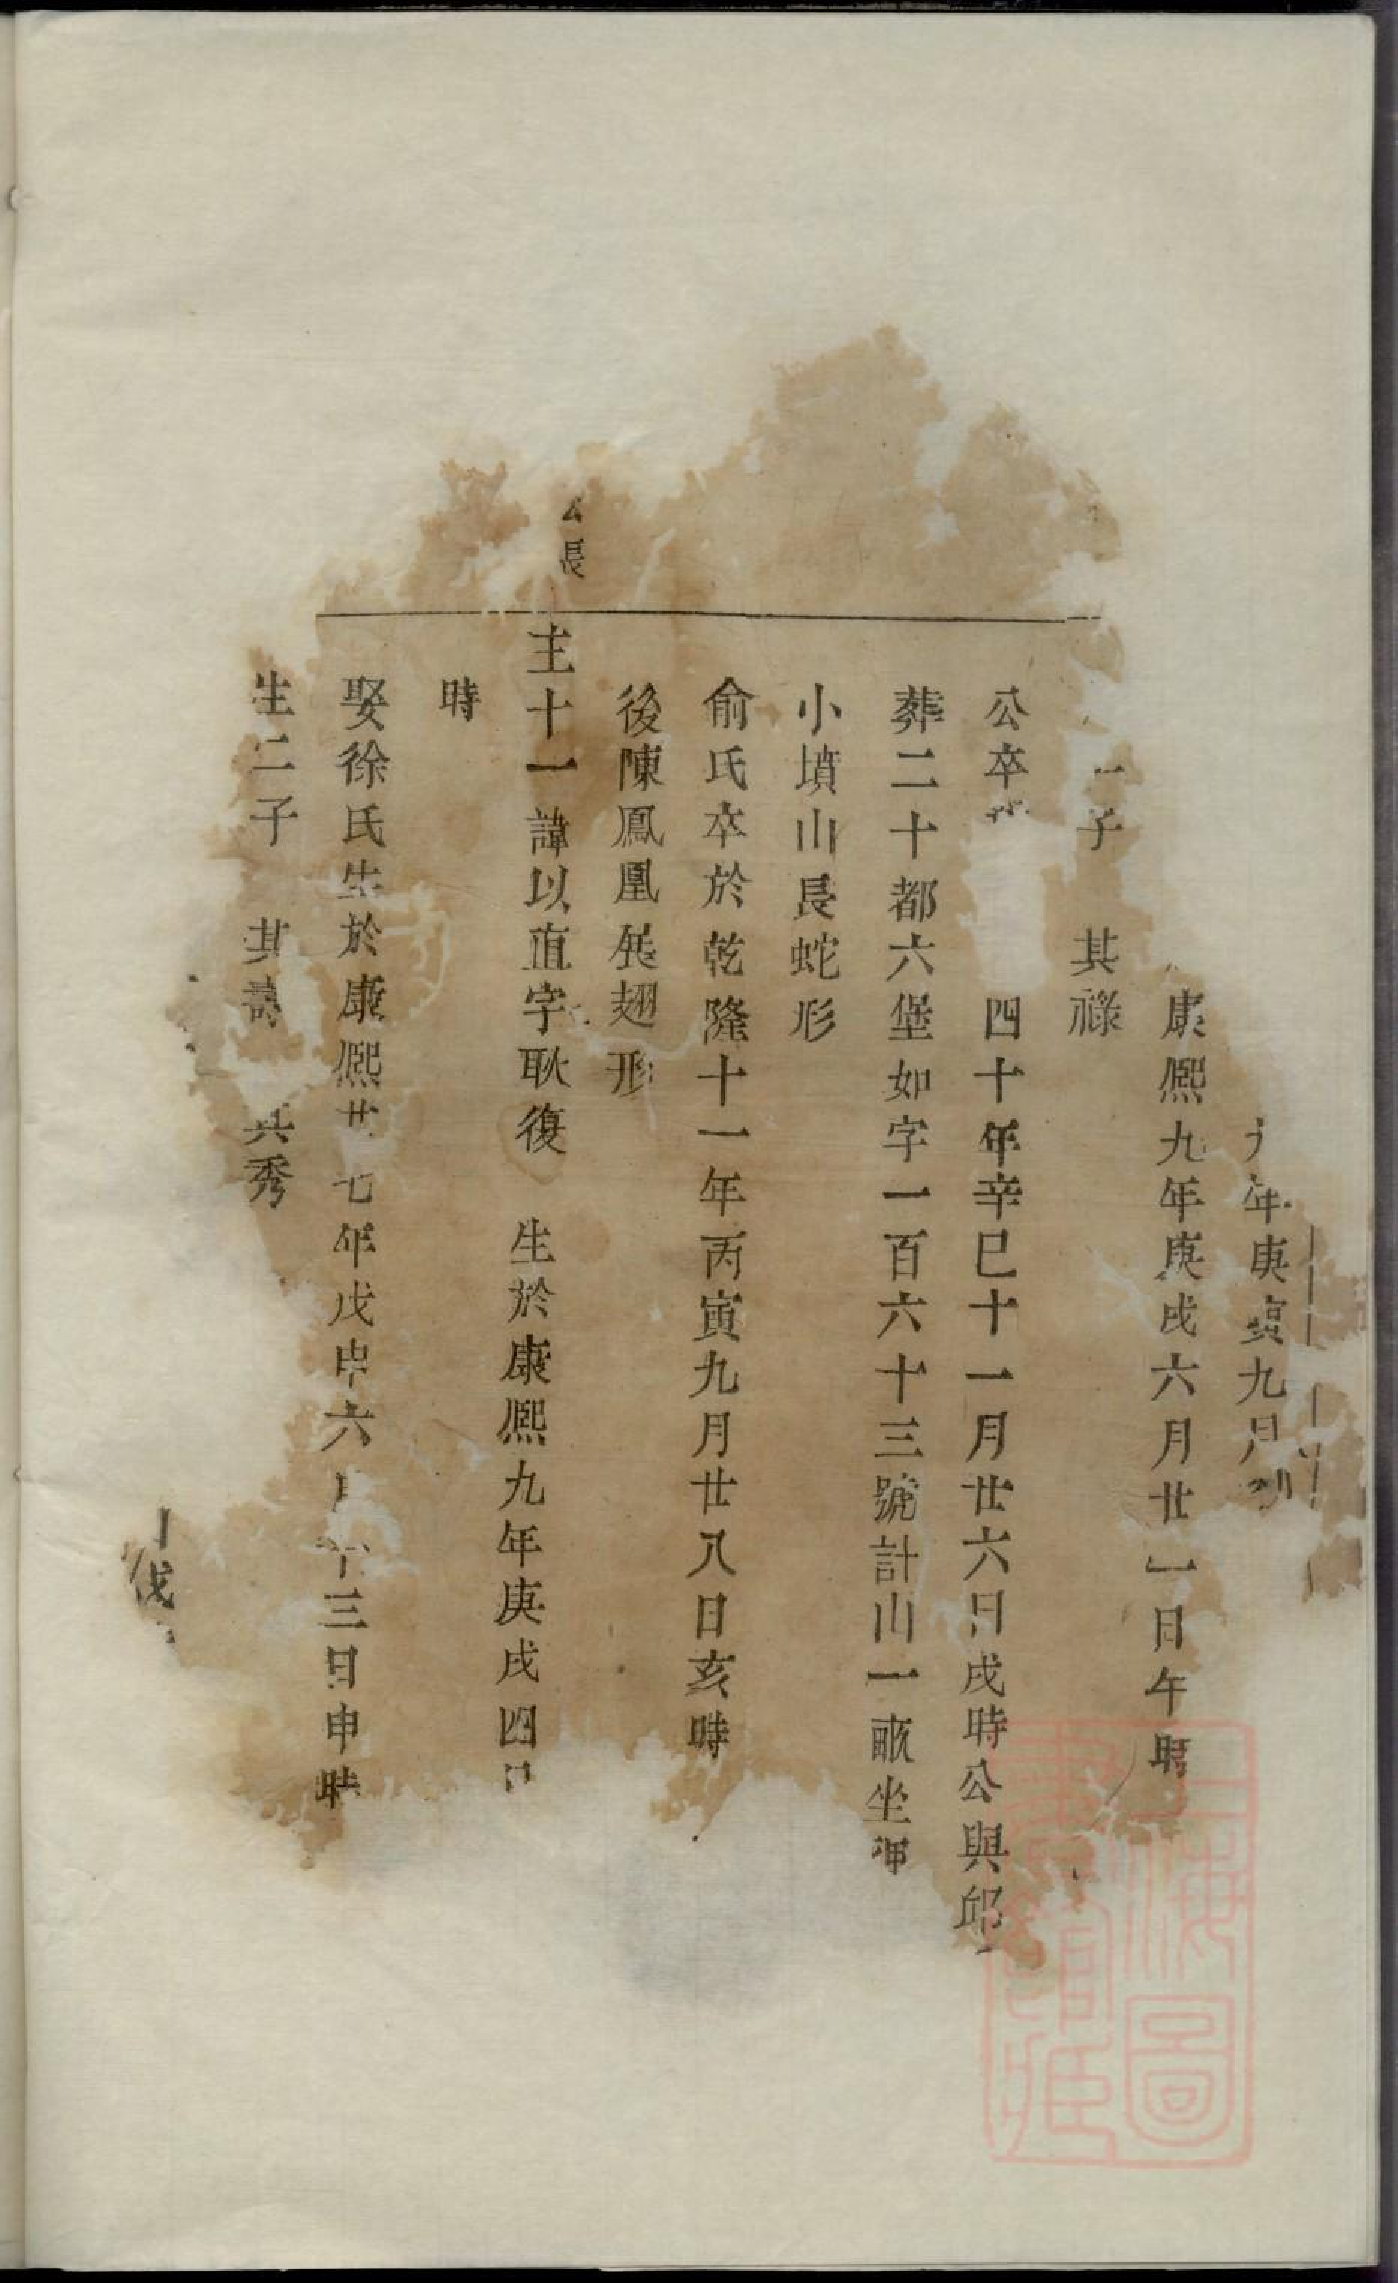 年庚寅九月
康熙九年庚戌六月廿一日午時
子 其祿
公卒 四十年辛巳十一月廿六日戌時公與邱
葬二十都六堡如字一百六十三號計山一畝坐
小墳山長蛇形
俞氏卒於乾隆十一年丙寅九月廿八日亥時
後陳鳳凰展翅形
公長
主十一諱以直字耿復 生於康熙九年庚戌四
時
娶徐氏生於康熙廿七年戊申六 十三日申時
生二子 其壽 其秀
上海圖書館藏